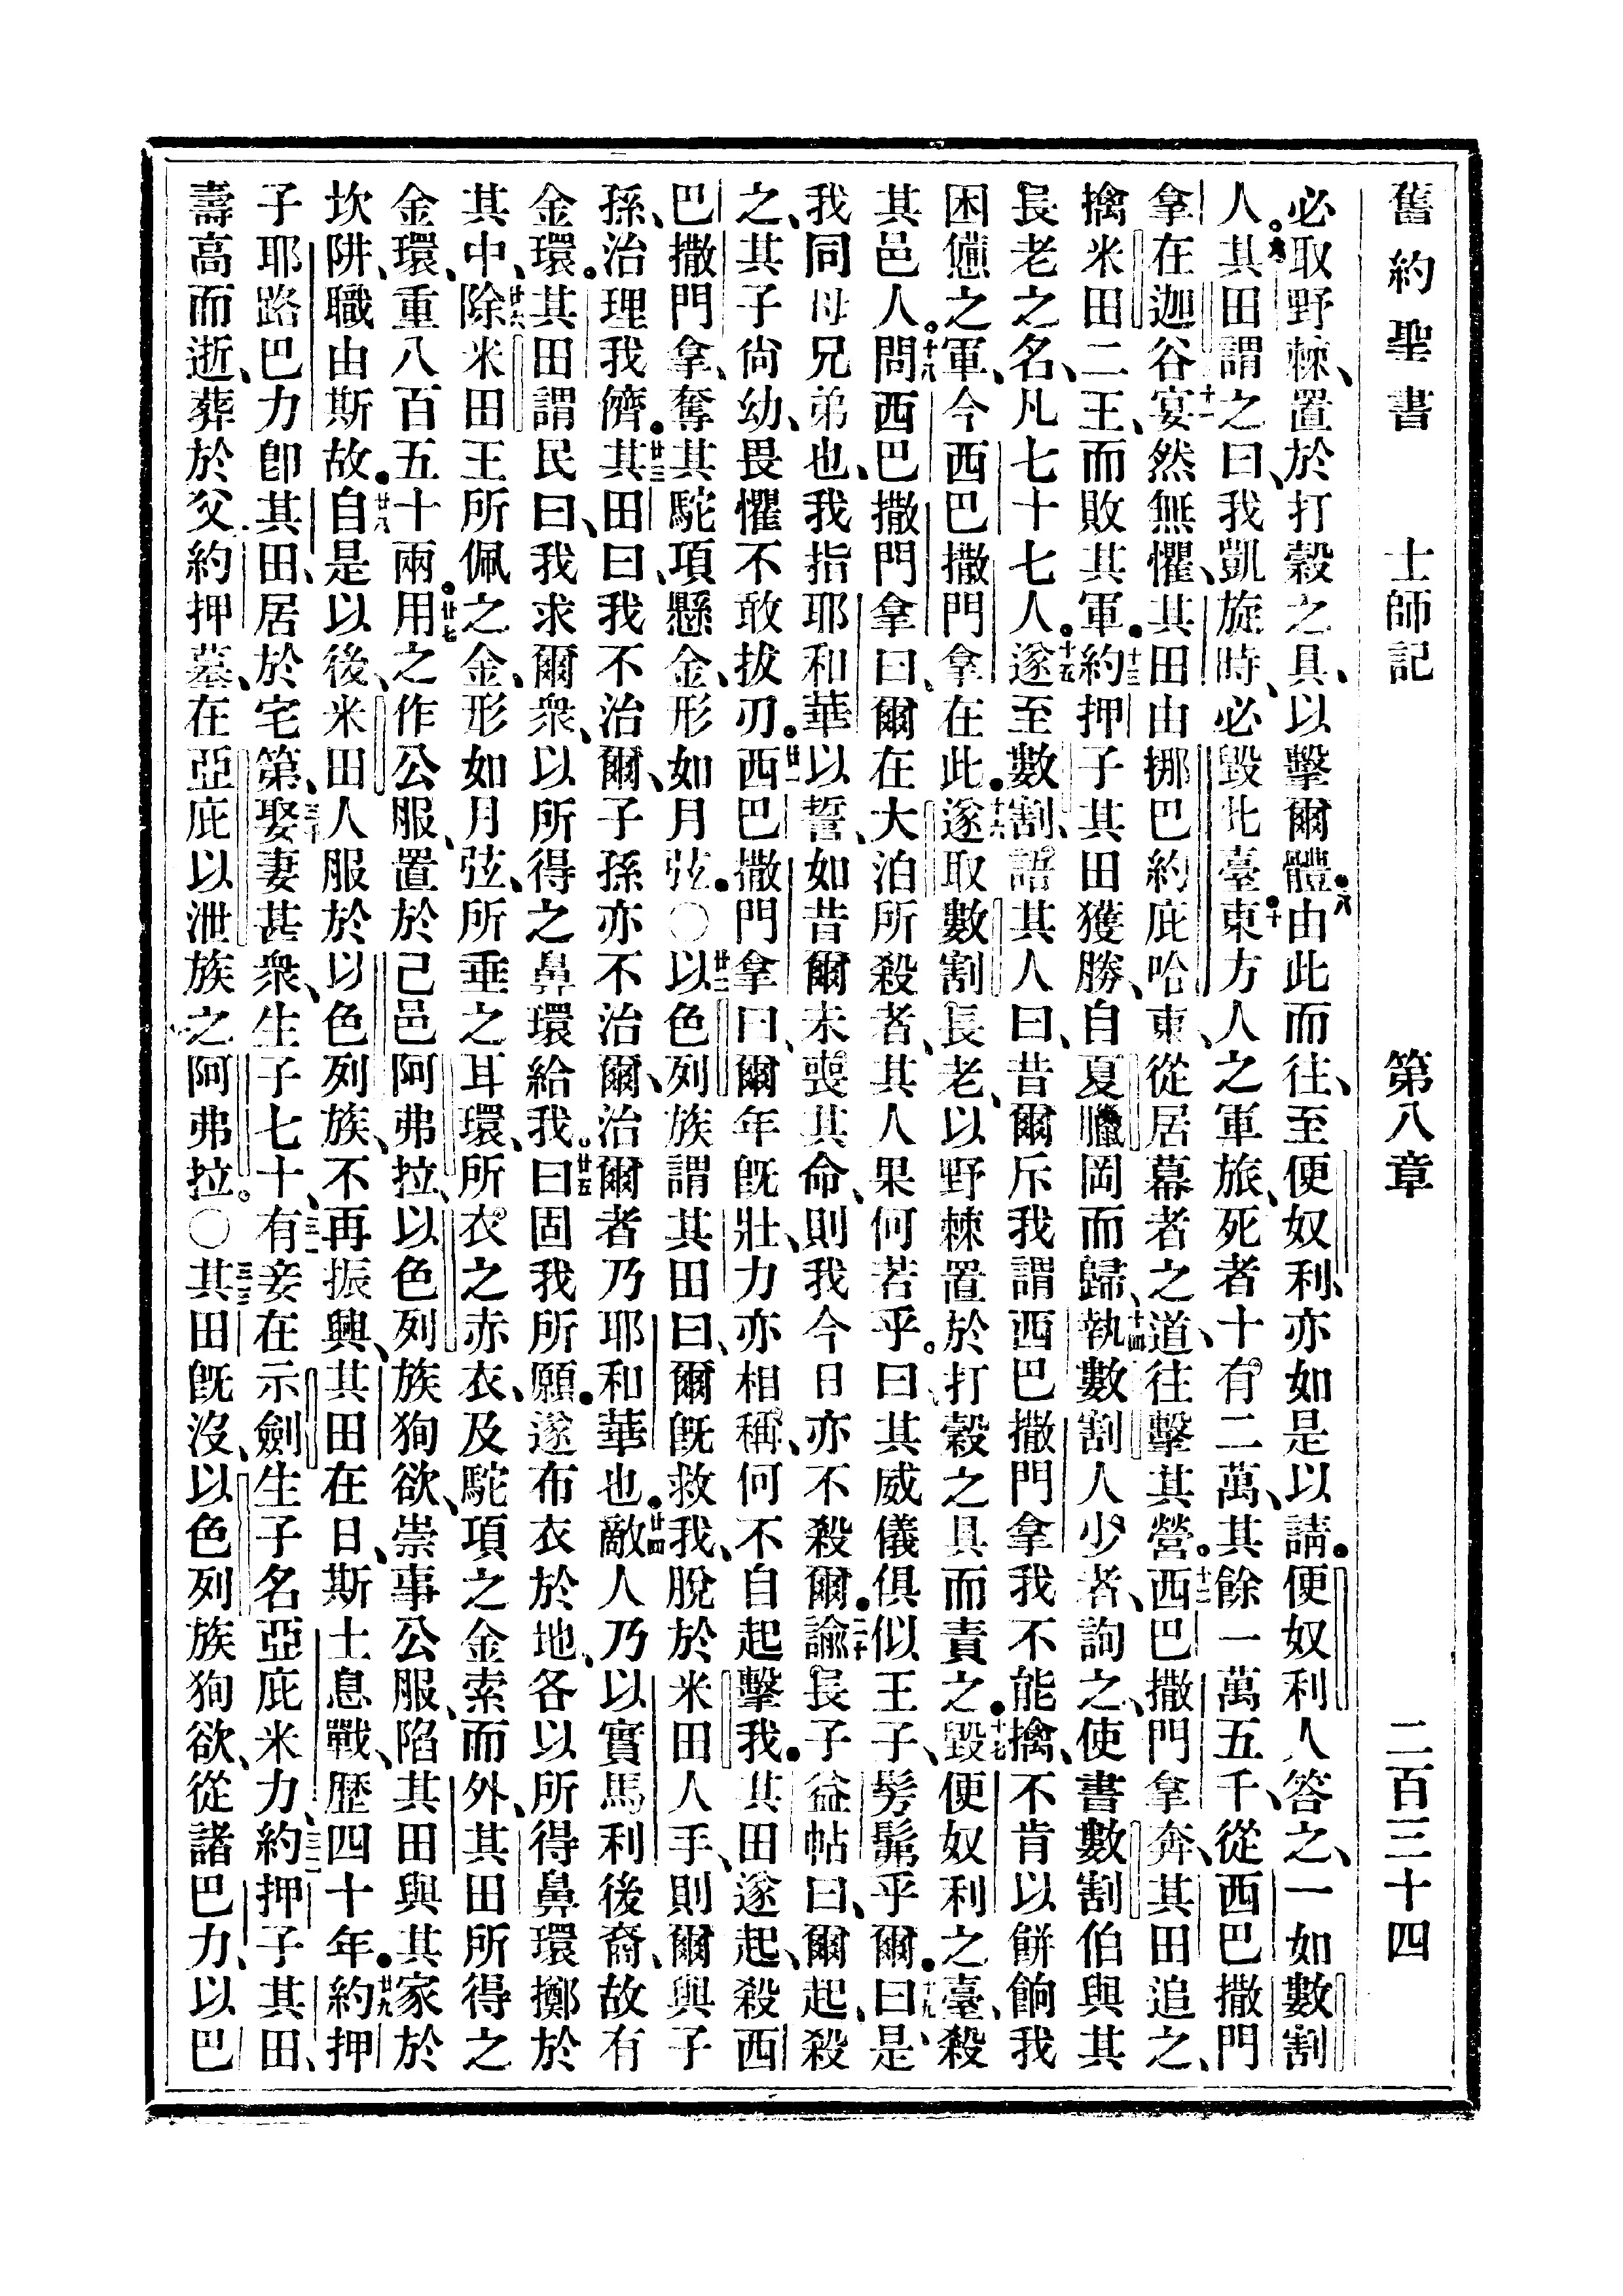 舊約聖書 士師記 第八章 二百三十四
必取野棘、置於打穀之具、以擊爾體。八由此而往、至便奴利、亦如是以請。便奴利人答之、一如數割
人。九其田謂之曰、我凱旋時、必毀此臺。十東方人之軍旅、死者十有二萬、其餘一萬五千、從西巴撒門
拿在迦谷、十一宴然無懼、其田由挪巴約庇哈東、從居幕者之道、往擊其營。十二西巴撒門拿奔、其田追之、
擒米田二王、而敗其軍。十三約押子其田獲勝、自夏臘岡而歸、十四執數割人少者、詢之、使書數割伯與其
長老之名、凡七十七人。十五遂至數割、語其人曰、昔爾斥我謂西巴撒門拿我不能擒、不肯以餅餉我
困憊之軍、今西巴撒門拿在此。十六遂取數割長老、以野棘置於打穀之具而責之。十七毀便奴利之臺、殺
其邑人。十八問西巴撒門拿曰、爾在大泊所殺者、其人果何若乎。曰其威儀俱似王子、髣髴乎爾。十九曰、是
我同母兄弟也、我指耶和華以誓、如昔爾未喪其命、則我今日亦不殺爾。二十諭長子益帖曰、爾起、殺
之、其子尙幼、畏懼不敢拔刃。廿一西巴撒門拿曰、爾年旣壯、力亦相稱、何不自起擊我。其田遂起、殺西
巴撒門拿、奪其駝項懸金、形如月弦。〇廿二以色列族謂其田曰、爾旣救我、脫於米田人手、則爾與子
孫、治理我儕。廿三其田曰、我不治爾、子孫亦不治爾、治爾者乃耶和華也。廿四敵人乃以實馬利後裔、故有
金環。其田謂民曰、我求爾衆、以所得之鼻環給我。廿五曰固我所願。遂布衣於地、各以所得鼻環擲於
其中、廿六除米田王所佩之金、形如月弦、所垂之耳環、所衣之赤衣、及駝項之金索而外、其田所得之
金環、重八百五十兩。廿七用之作公服、置於己邑阿弗拉、以色列族狥欲、崇事公服、陷其田與其家於
坎阱、職由斯故。廿八自是以後、米田人服於以色列族、不再振興、其田在日、斯土息戰、歷四十年。廿九約押
子耶路巴力卽其田、居於宅第、三十娶妻甚衆、生子七十、三一有妾在示劍生子名亞庇米力、三二約押子其田、
壽高而逝、葬於父約押墓、在亞庇以泄族之阿弗拉。〇三三其田旣沒、以色列族狥欲、從諸巴力、以巴